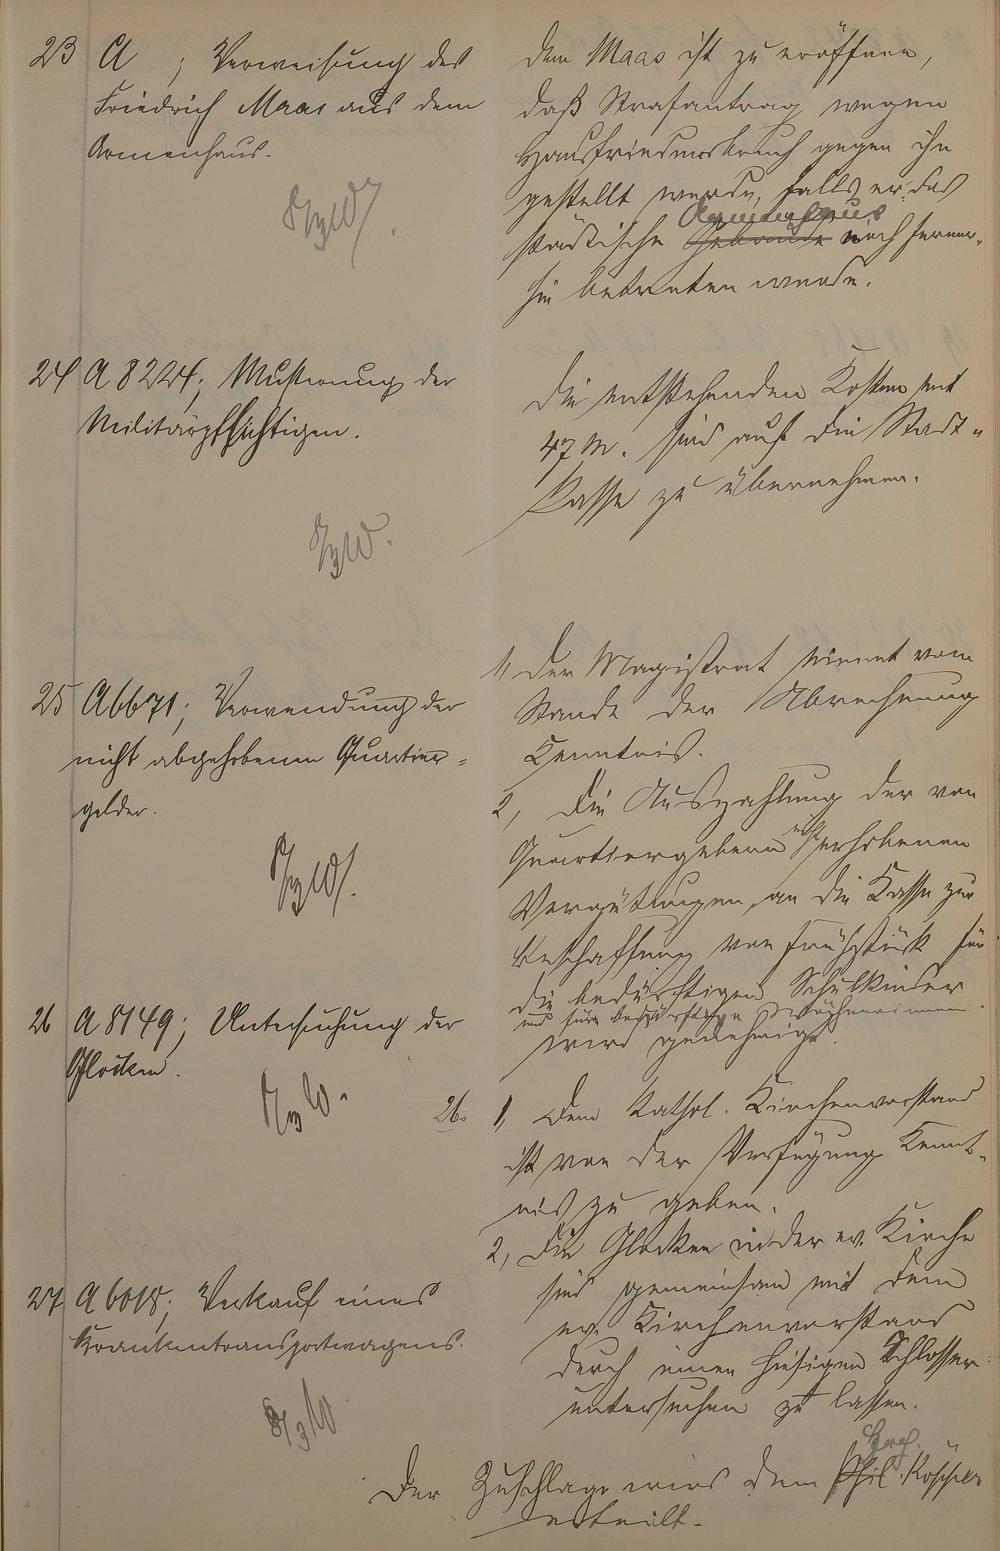 23 A ; Verweisung des
Friedrich Maas aus dem
Armenhaus.
Dem Maas ist zu eröffnen,
daß Strafantrag wegen
Hausfriedensbruch gegen ihn
gestellt werde, falls er das
Armenhaus
städtische Gebäude noch ferner-
hin betreten werde.
24 A 8224; Musterung der
Militärpflichtigen.
Die entstehenden Kosten mit
47 M. sind auf die Stadt-
kasse zu übernehmen.
25 A 6671; Verwendung der
nicht abgehobenen Quartier-
gelder.
1, Der Magistrat nimmt vom
Stande der Abrechnung
Kenntnis.
2, Die Auszahlung der von
Quartiergebern nicht erhobenen
Vergütungen, an die Kasse zur
Beschaffung von Frühstück für
die bedürftigen Schulkinder
und für bedürftige Wöchnerinnen
wird genehmigt.
26 A 8149; Untersuchung der
Glocken.
26. 1, Dem kathol. Kirchenvorstand
ist von der Verfügung Kennt-
nis zu geben.
2, Die Glocken in der ev. Kirche
sind gemeinsam mit dem
ev. Kirchenvorstand
durch einen hiesigen Schlosser
untersuchen zu lassen.
27 A 6018; Verkauf eines
Krankentransportwagens.
Der Zuschlag wird dem Phil.
erteilt.